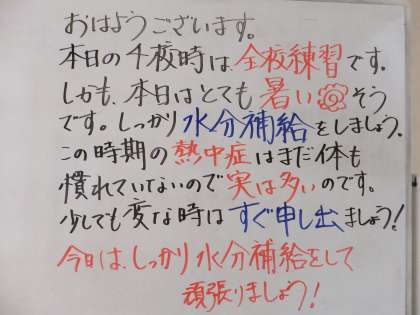 おはようございます。
本日の4校時は、全校練習です。
しかも、本日はとても暑いそう
です。しっかり水分補給をしましょう。
この時期の熱中症はまだ体も
慣れていないので実は多いのです。
少しでも変な時はすぐ申し出ましょう!
今日は、しっかり水分補給をして
頑張りましょう!